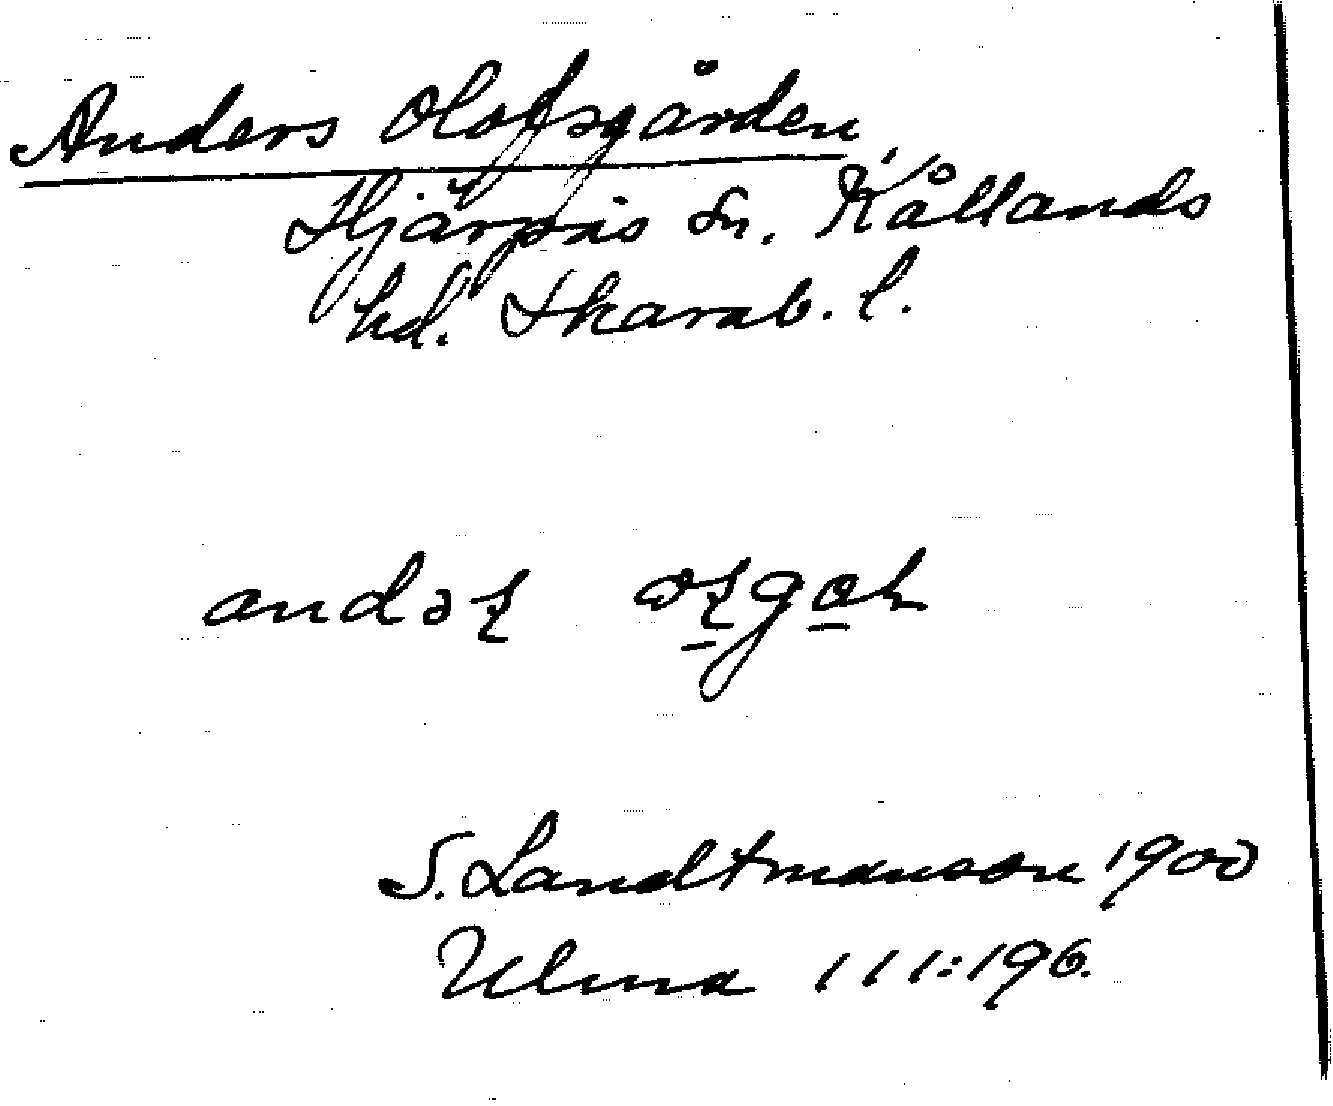 Anders Olofsgården,
Hjärpås sn. Kållands
hd. Skarab. l.
andəʂ
S. Landtmanson 1900
Ulma 111:196.